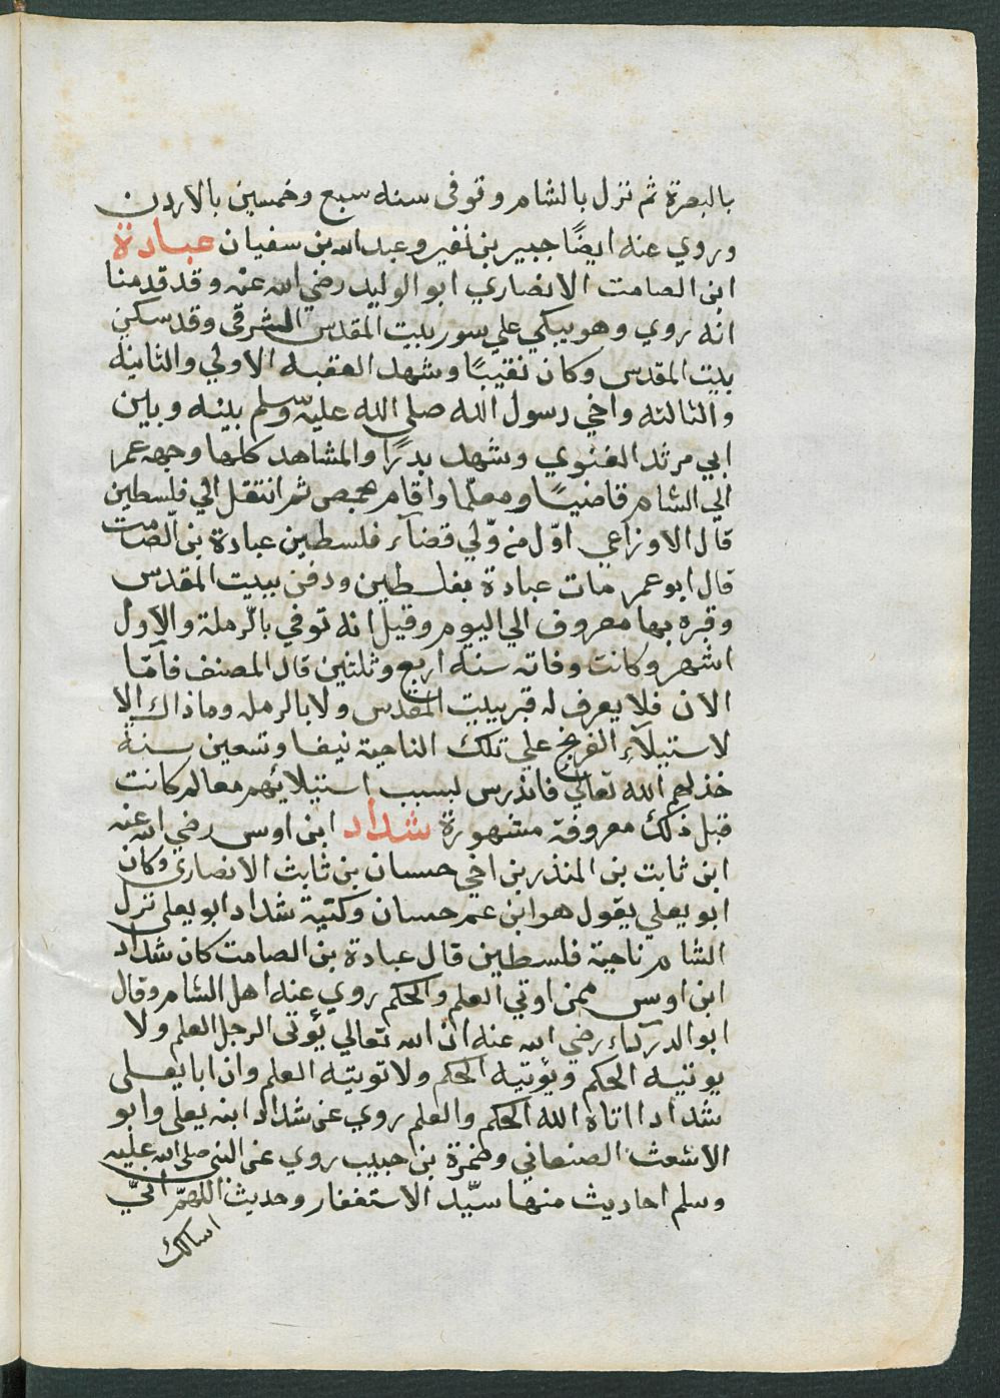 بالبصرة ثم نزل بالشام وتوفى سنه سبع وخمسين بالاردن
وروي عنه ايضًا جبير بن نفير وعبد الله بن سفيان عبادة
ابن الصامت الانصاري ابو الوليد رضي الله عنه وقد قدمنا
انه روي وهو يبكي علي سور بيت المقدس الشرقي وقد سكن
بيت المقدس وكان نقيبًا وشهد العقبه الاولي والثانيه
والثالثه واخي رسول الله صلى الله عليه وسلم بينه وبين
ابي مرثد الغنوي وشهد بدرًا والمشاهد كلها وجهه عمر
الي الشام قاضيًا ومعلما واقام بحمص ثم انتقل الي فلسطين
قال الاوزاعي اوّل من وّلي قضآء فلسطين عبادة بن الصامت
قال ابو عمر مات عبادة بفلسطين ودفن ببيت المقدس
وقبره بها معروف الي اليوم وقيل انه توفي بالرملة والاول
اشهر وكانت وفاته سنه اربع وثلثين قال المصنف فأمّا
الان فلا يعرف له قبر ببيت المقدس ولا بالرمله وما ذاك الا
لاستيلآء الفرنج علي تلك الناحية نيفا وتسعين سنة
خذلهم الله تعالي فاندرس بسبب استيلائهم معالم كانت
قبل ذلك معروفة مشهورة شداد ابن اوس رضي الله عنه
ابن ثابت بن المنذر بن اخي حسان بن ثابت الانصاري وكان
ابو يعلي يقول هو ابن عم حسان وكنية شداد ابو يعلى نزل
الشام ناحية فلسطين قال عبادة بن الصامت كان شداد
ابن اوس ممن اوتي العلم والحكم روي عنه اهل الشام وقال
ابو الدرداء رضي الله عنه ان الله تعالي يؤتى الرجل العلم ولا
يوتيه الحكم ويؤتيه الحكم ولا توتيه العلم وان ابا يعلى
شدادا اتاه الله الحكم والعلم روي عن شداد ابنه يعلى وابو
الاشعث الصنعاني وضمرة بن حبيب روي عن النبي صلى الله عليه
وسلم احاديث منها سيّد الاستغفار وحديث اللهمّ انيّ
اسالك